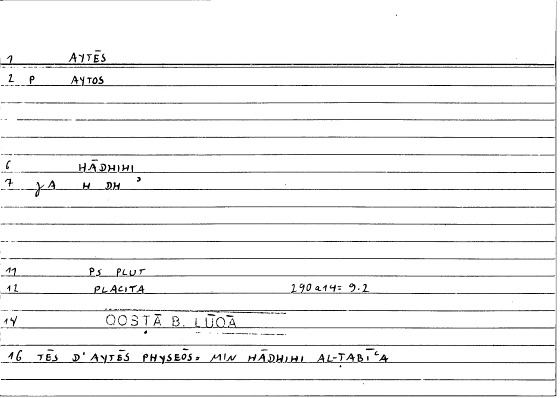 1 AYTĒS
2 P AYTOS
6 HĀDHIHI
7 yA H DH ʾ
11 PS PLUT
12 PLACITA 290a14= 9.2
14 QOSṬĀ B. LŪQĀ
16 TĒS D'AYTĒS PHYSEŌS= MIN HĀDHIHI AL-ṬABĪʿA